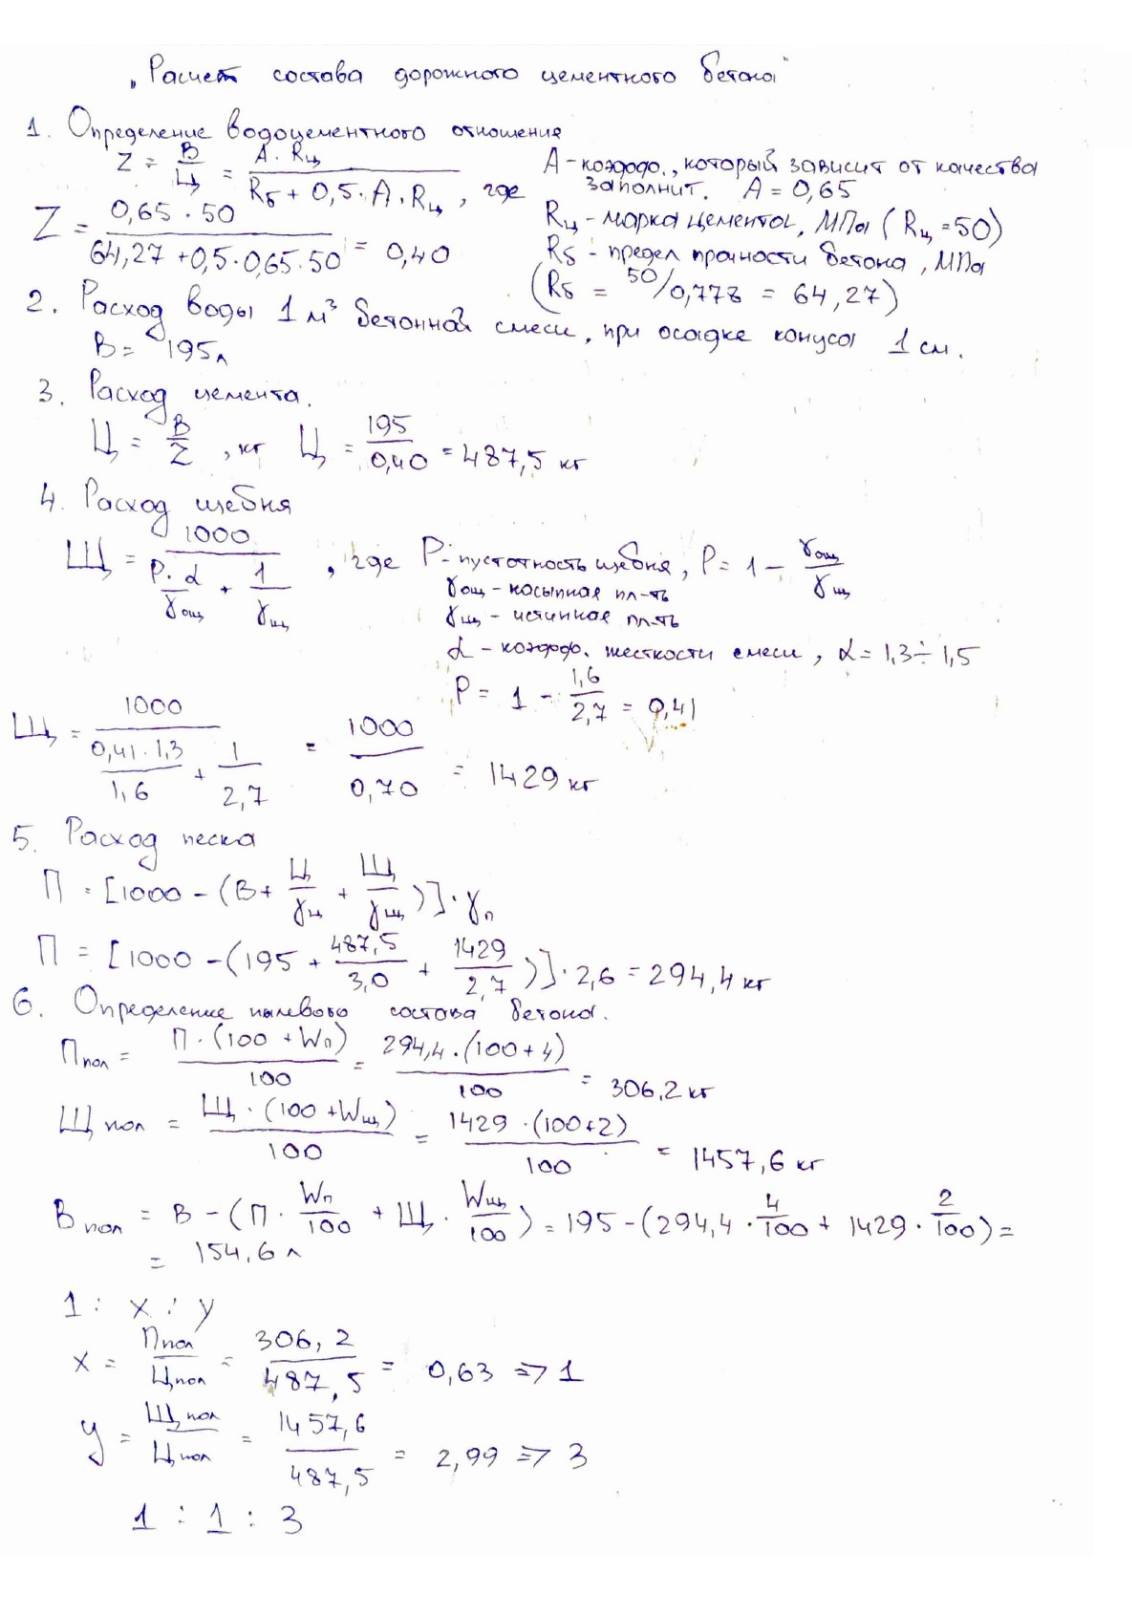 „Расчет состава дорожного цементного бетона"
1. Определение водоцементного отношения
Z = В/Ц = А · Rц / (Rб + 0,5 · А · Rц), где
А - коэфф., который зависит от качества
заполнит. А = 0,65
Rц - марка цемента, МПа (Rц = 50)
Rб - предел прочности бетона, МПа
(Rб = 50/0,778 = 64,27)
Z = 0,65 · 50 / (64,27 + 0,5 · 0,65 · 50) = 0,40
2. Расход воды 1 м³ бетонной смеси, при осадке конуса 1 см.
В = 195 л
3. Расход цемента.
Ц = В/Z, кг Ц = 195/0,40 = 487,5 кг
4. Расход щебня
Щ = 1000 / (P · α/γощ + 1/γщ), где P - пустотность щебня, P = 1 - γощ/γщ
γощ - насыпная пл-ть
γщ - истинная пл-ть
α - коэфф. жесткости смеси, α = 1,3 ÷ 1,5
P = 1 - 1,6/2,7 = 0,41
Щ = 1000 / (0,41 · 1,3/1,6 + 1/2,7) = 1000/0,70 = 1429 кг
5. Расход песка
П = [1000 - (В + Ц/γц + Щ/γщ)] · γп
П = [1000 - (195 + 487,5/3,0 + 1429/2,7)] · 2,6 = 294,4 кг
6. Определение полевого состава бетона.
Ппол = П · (100 + Wп)/100 = 294,4 · (100 + 4)/100 = 306,2 кг
Щпол = Щ · (100 + Wщ)/100 = 1429 · (100 + 2)/100 = 1457,6 кг
Впол = В - (П · Wп/100 + Щ · Wщ/100) = 195 - (294,4 · 4/100 + 1429 · 2/100) =
= 154,6 л
1 : x : y
x = Ппол/Цпол = 306,2/487,5 = 0,63 => 1
y = Щпол/Цпол = 1457,6/487,5 = 2,99 => 3
1 : 1 : 3